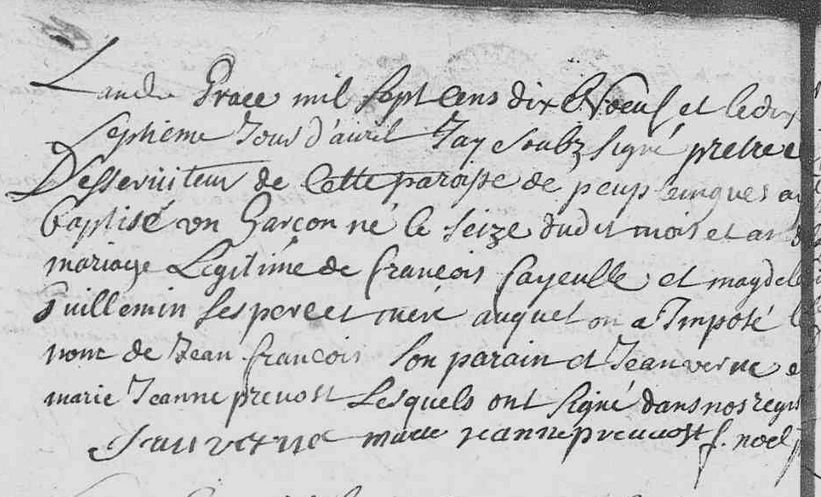 Lan de Grace mil sept cens dix et Noeuf et le dix
septieme Jour d'avril Jay soubz signé prestre
Desserviteur de Cette paroisse de peuplingues ay
baptisé un Garcon né le seize dudit mois et an
mariage Legitime de francois Cayeulle et magdel
Guillemin ses pere et mere auquel on a Imposé le
nom de Jean francois son parain et Jean verne et
marie Jeanne prevost Lesquels ont signé dans nos regis
Jan verne marie jeanne prevvost f. noel